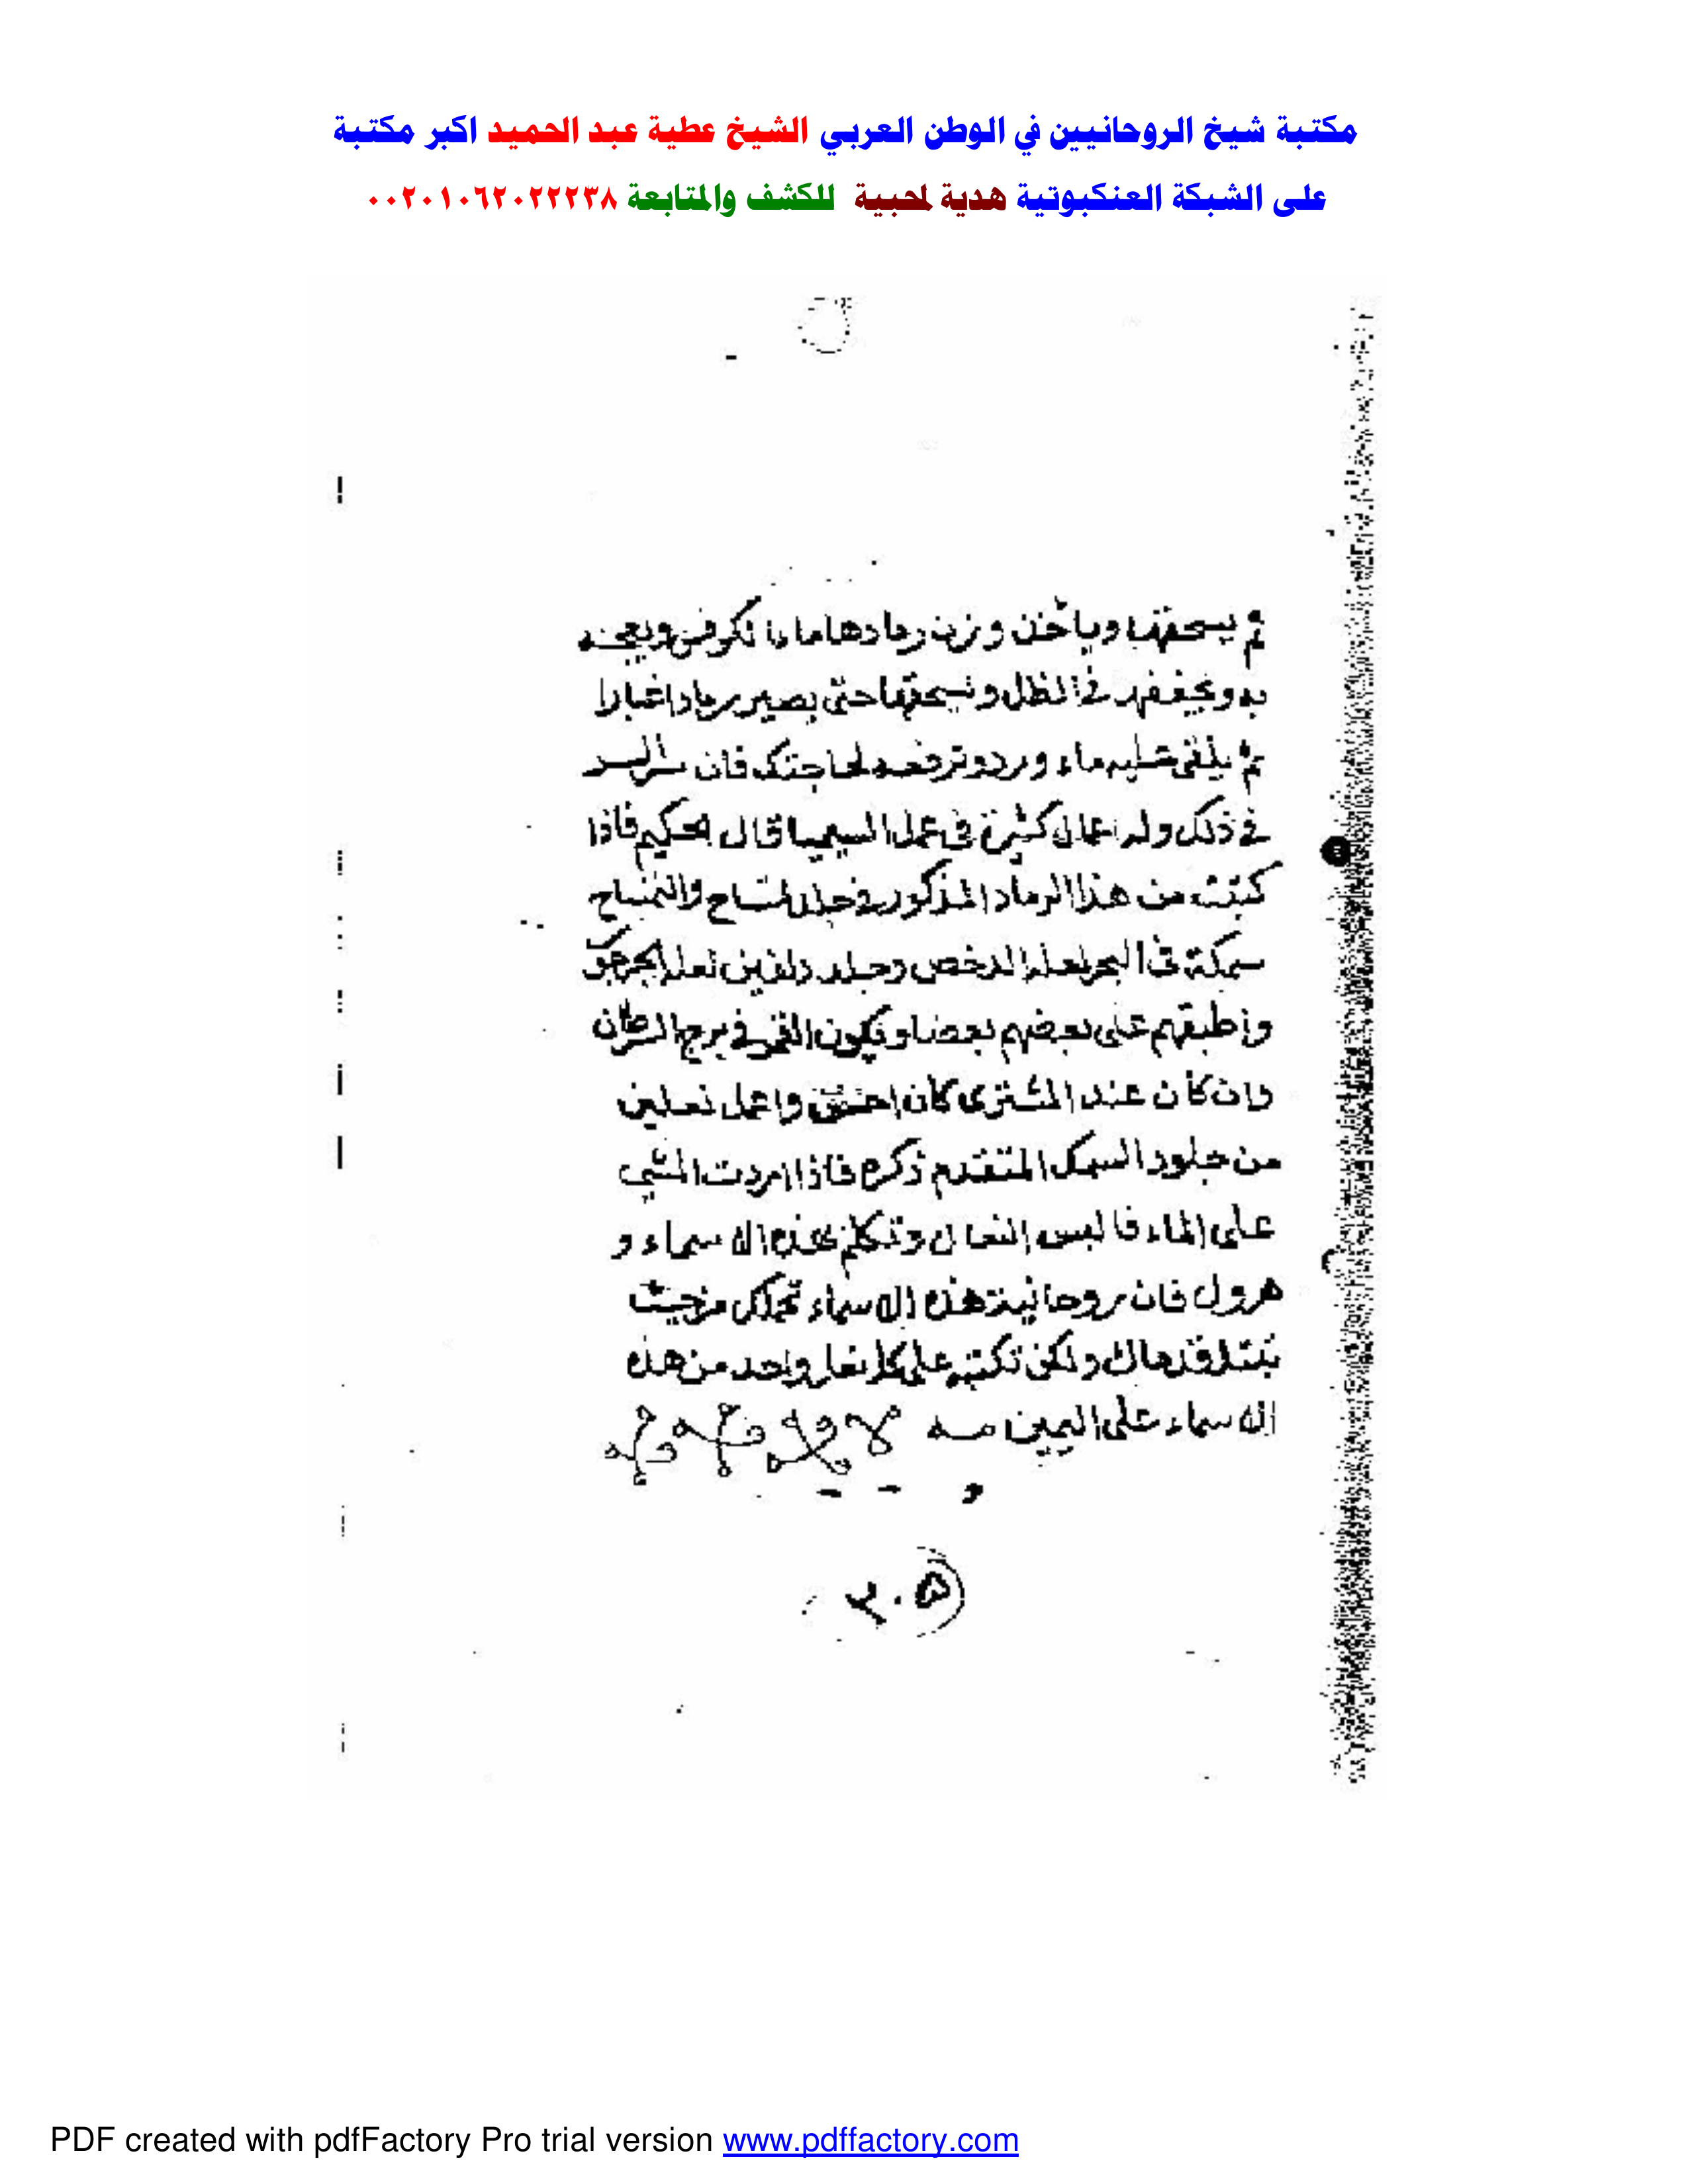 مكتبة شيخ الروحانيين في الوطن العربي الشيخ عطية عبد الحميد اكبر مكتبة
على الشبكة العنكبوتية هدية لمحبية للكشف والمتابعة ٠٠٢٠١٠٦٢٠٢٢٢٣٨
ثم يسحقها وياخذ وزن رمادها ماء الكرفس ويعجنه
به ويجففه في الظل ويسحقها حتى يصير رمادا غبارا
ثم يلقى عليه ماء ورد وترفعه لحاجتك فان
في ذلك وله اعمال كثيرة في عمل السيميا قال الحكيم فاذا
كتبت من هذا الرماد المذكور في جلد التمساح والتمساح
سمكة في البحر الدخص وجلد دلفين
واطبقهم على بعضهم بعضا ويكون القمر في برج السرطان
وان كان عند المشترى كان واعمل نعلين
من جلود السمك المتقدم ذكره فاذا اردت المشي
على الماء فالبس النعال وتكلم بهذه الاسماء و
هرول فان روحانية هذه الاسماء تحملك من حيث
قدماك ولكن تكتب على كل نعل واحد من هذه
الاسماء على اليمين
٢٠٥
PDF created with pdfFactory Pro trial version www.pdffactory.com